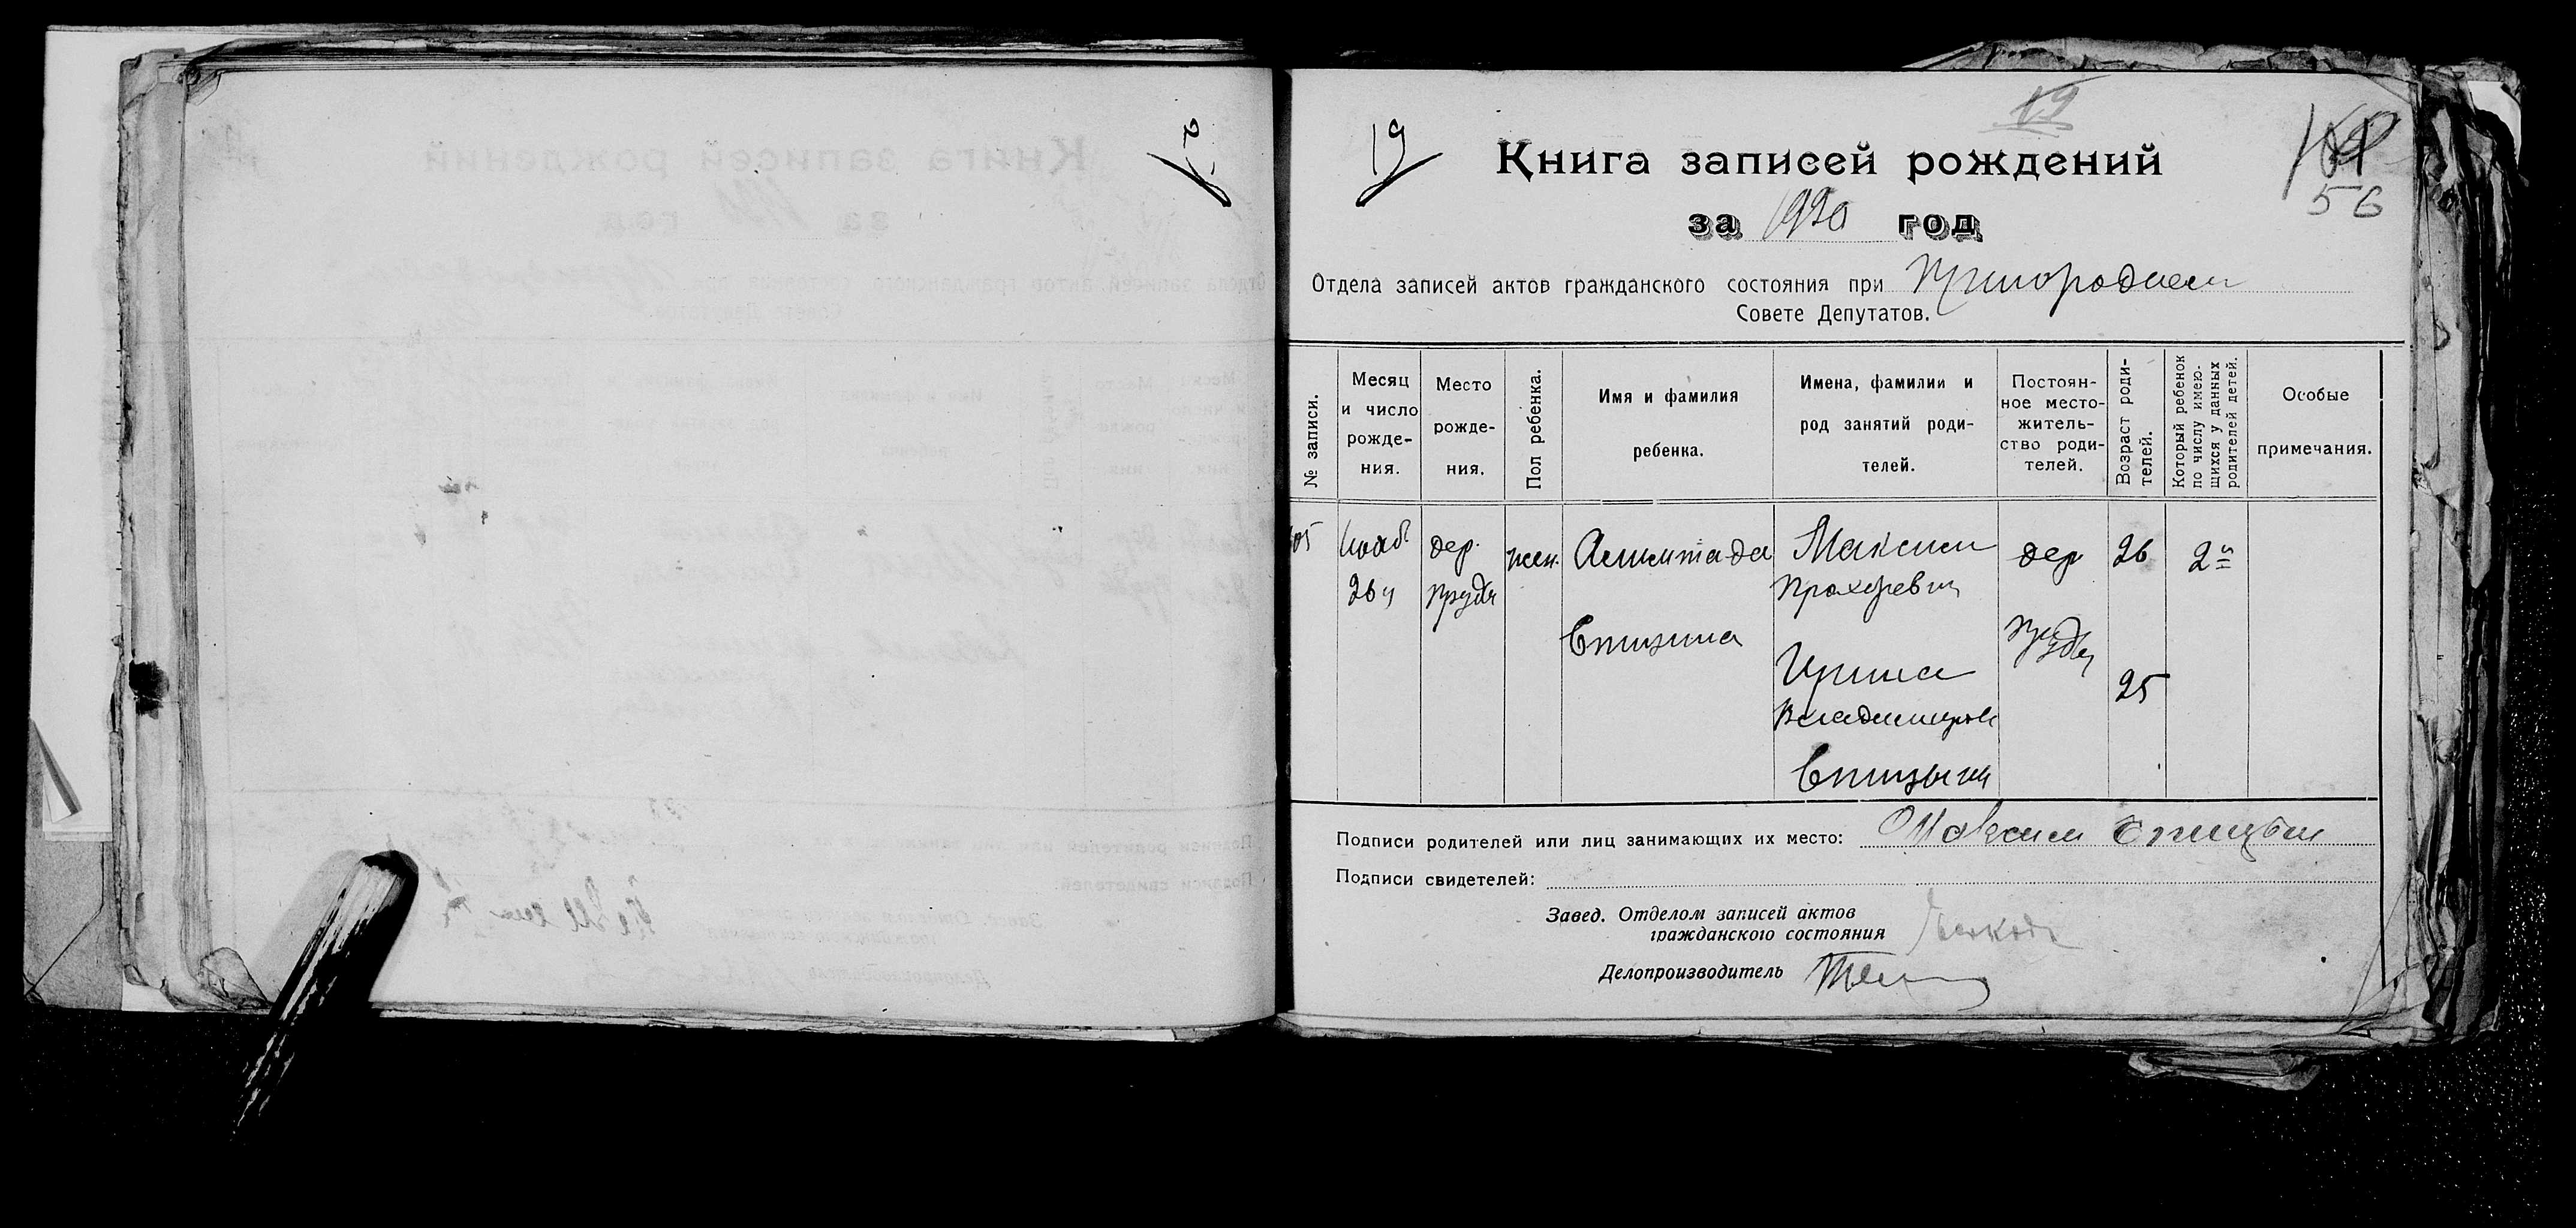 19
19
Книга записей рождений
56
за 1920 год
Отдела записей актов гражданского состояния при Пригородном
Совете Депутатов.
№ записи.
Месяц и число рожде-ния.
Место рожде-ния.
Пол ребенка.
Имя и фамилия ребенка.
Имена, фамилии и род занятий роди-телей.
Постоян-ное место-житель-ство роди-телей.
Возраст роди-телей.
Который ребенок по числу имею-щихся у данных родителей детей.
Особые примечания.
105
Нояб. 26 ч
дер. Пруды
жен.
Спицина
Максим
Прохоревич
Ирина
Владимиров
Спицыны
дер
Пруды
26
25
2й
Подписи родителей или лиц занимающих их место: Максим Спицын
Подписи свидетелей:
Завед. Отделом записей актов
гражданского состояния
Делопроизводитель